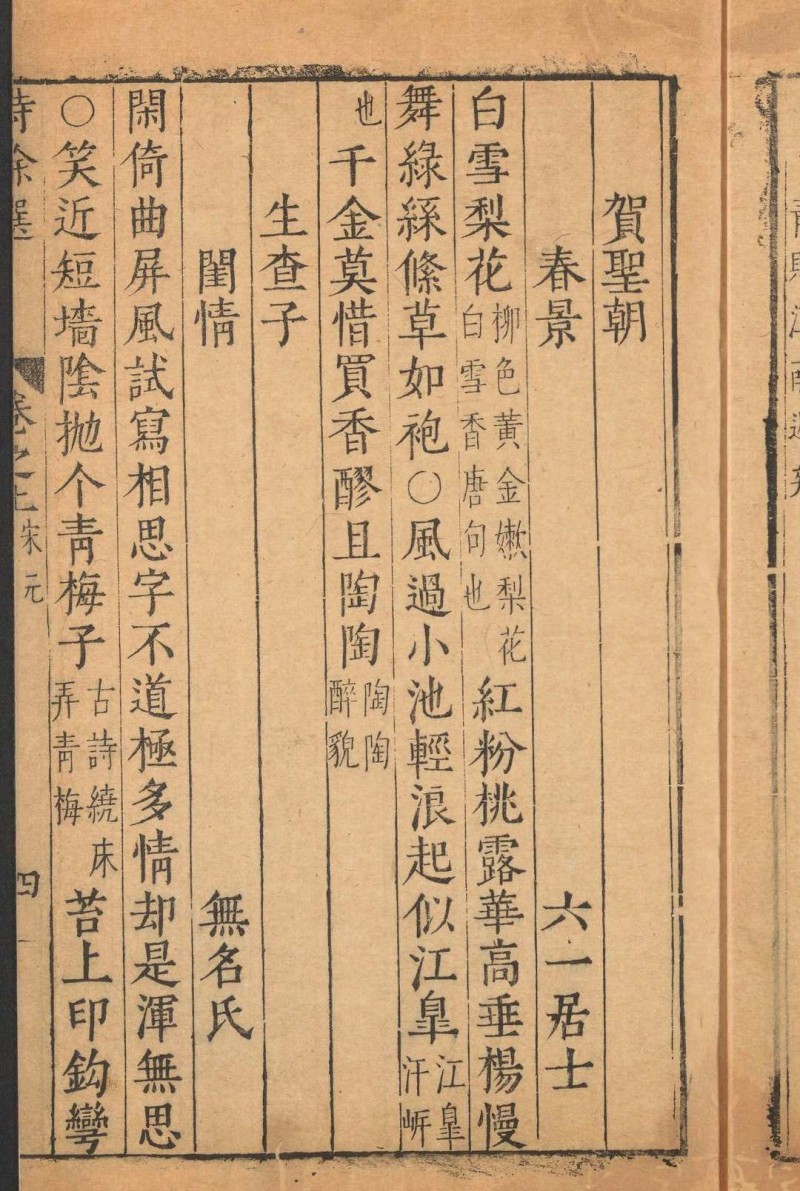 賀聖朝
春景 六一居士
白雪梨花柳色黃金嫩梨花白雪香唐句也紅粉桃露華高垂楊慢
舞綠絲條草如袍○風過小池輕浪起似江臯江臯汗岍
也千金莫惜買香醪且陶陶陶陶醉貌
生查子
閨情 無名氏
閑倚曲屏風試寫相思字不道極多情却是渾無思
○笑近短墻陰抛个青梅子古詩繞床弄青梅苔上印鈎彎
詩餘選 卷之上宋元 四